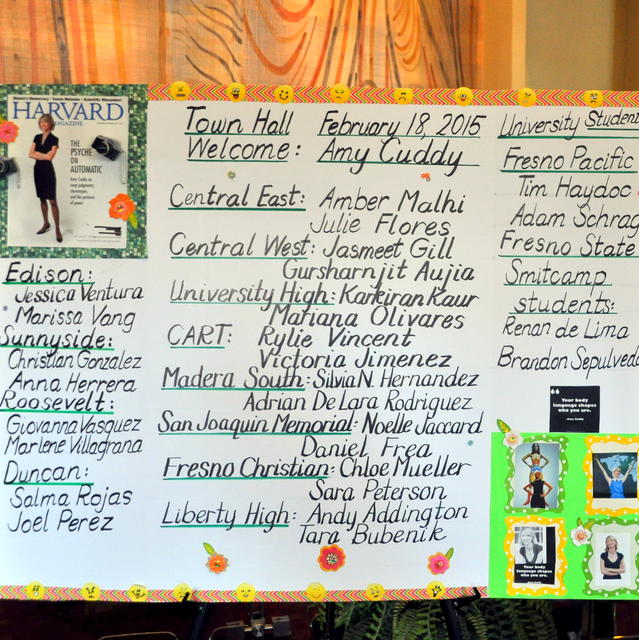 HARVARD
MAGAZINE
THE
PSYCHE
ON
AUTOMATIC
Edison:
Jessica Ventura
Marissa Vang
Sunnyside:
Christian Gonzalez
Anna Herrera
Roosevelt:
Giovanna Vasquez
Marlene Villagrana
Duncan:
Salma Rojas
Joel Perez
Town Hall February 18, 2015
Welcome: Amy Cuddy
Central East: Amber Malhi
Julie Flores
Central West: Jasmeet Gill
Gursharnjit Aujia
University High: Karkiran Kaur
Mariana Olivares
CART: Rylie Vincent
Victoria Jimenez
Madera South: Silvia N. Hernandez
Adrian De Lara Rodriguez
San Joaquin Memorial: Noelle Jaccard
Daniel Frea
Fresno Christian: Chloe Mueller
Sara Peterson
Liberty High: Andy Addington
Tara Bubenik
University Student
Fresno Pacific
Tim Haydoc
Adam Schrag
Fresno State
Smitcamp
students:
Renan de Lima
Brandon Sepulveda
Your body
language shapes
who you are.
-Amy Cuddy
Your body
language shapes
who you are.